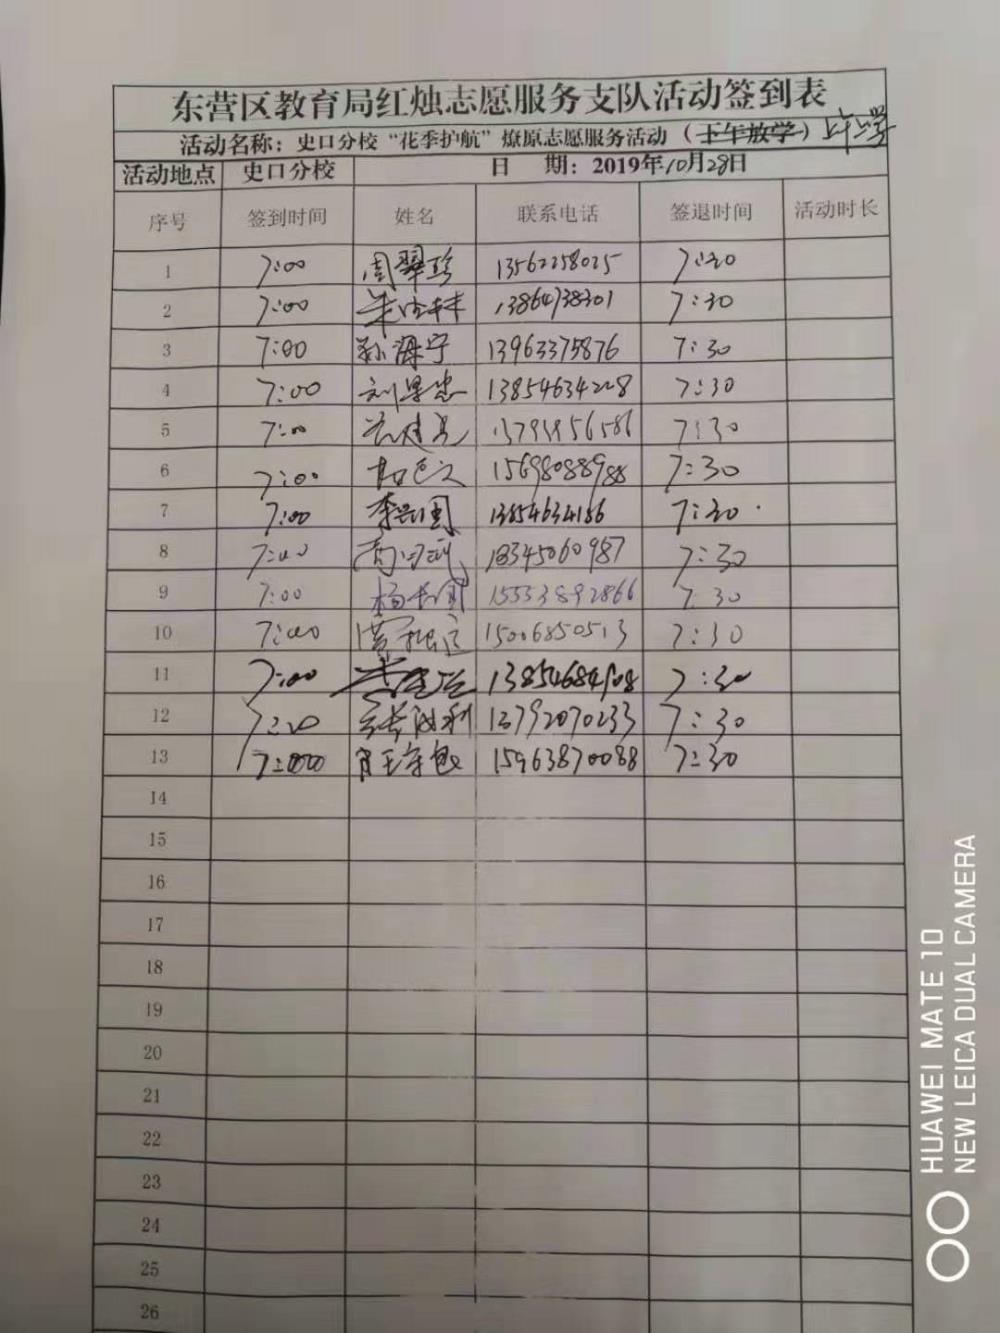 东营区教育局红烛志愿服务支队活动签到表
活动名称：史口分校“花季护航”燎原志愿服务活动（上午放学）上午上学
活动地点 史口分校 日 期：2019年10月28日
序号 签到时间 姓名 联系电话 签退时间 活动时长
1 7:00 周翠珍 13562258025 7:30
2 7:00 13864738301 7:30
3 7:00 13963375876 7:30
4 7:00 13854634228 7:30
5 7:00 7:30
6 7:00 15698088988 7:30
7 7:00 李兴国 13854634186 7:30
8 7:00 18345060987 7:30
9 7:00 杨长国 15553892866 7:30
10 7:00 15006850513 7:30
11 7:00 7:30
12 7:00 张洪利 13792070233 7:30
13 7:00 15963870088 7:30
14
15
16
17
18
19
20
21
22
23
24
25
26
HUAWEI MATE 10
NEW LEICA DUAL CAMERA